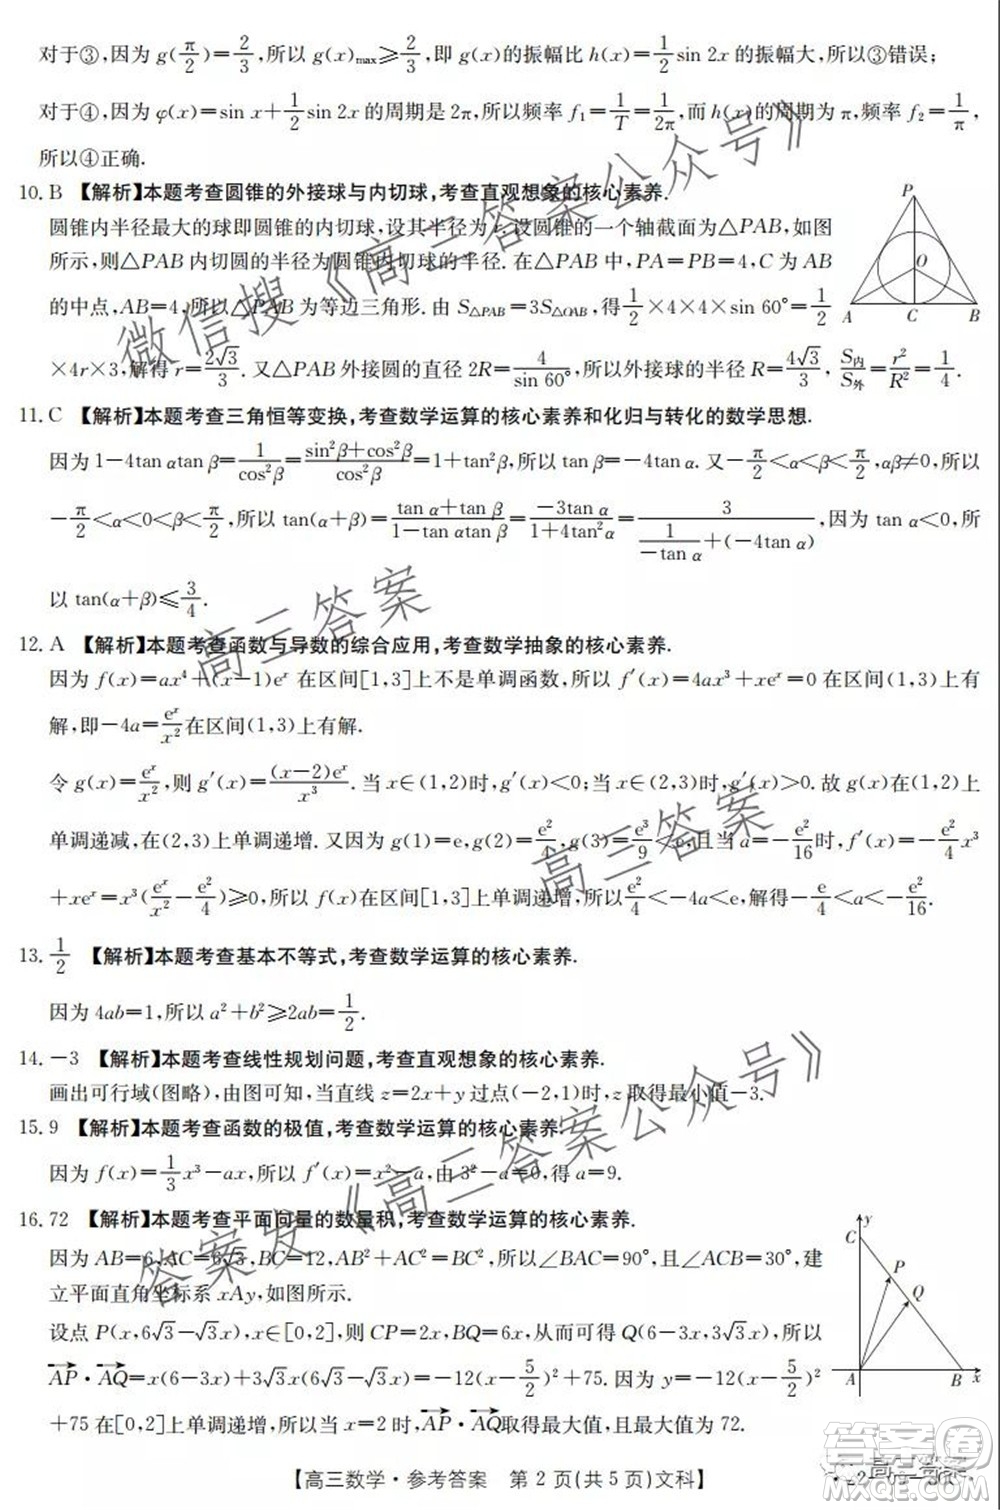 对于③,因为 g(π/2)=2/3,所以 g(x)max≥2/3,即 g(x)的振幅比 h(x)=1/2 sin 2x 的振幅大,所以③错误;
对于④,因为 φ(x)=sin x+1/2 sin 2x 的周期是 2π,所以频率 f₁=1/T=1/2π,而 h(x)的周期为 π,频率 f₂=1/π,
所以④正确.
10. B 【解析】本题考查圆锥的外接球与内切球,考查直观想象的核心素养.
圆锥内半径最大的球即圆锥的内切球,设其半径为 r.设圆锥的一个轴截面为△PAB,如图
所示,则△PAB 内切圆的半径为圆锥内切球的半径.在△PAB 中,PA=PB=4,C 为 AB
的中点,AB=4,所以△PAB 为等边三角形.由 S△PAB=3S△OAB,得1/2×4×4×sin 60°=1/2
×4r×3,解得 r=2√3/3.又△PAB 外接圆的直径 2R=4/sin 60°,所以外接球的半径 R=4√3/3,S内/S外=r²/R²=1/4.
P
O
A C B
11. C 【解析】本题考查三角恒等变换,考查数学运算的核心素养和化归与转化的数学思想.
因为 1-4tan αtan β=1/cos²β=(sin²β+cos²β)/cos²β=1+tan²β,所以 tan β=-4tan α.又-π/2<α<β<π/2,αβ≠0,所以
-π/2<α<0<β<π/2,所以 tan(α+β)=(tan α+tan β)/(1-tan αtan β)=-3tan α/(1+4tan²α)=3/(1/(-tan α)+(-4tan α)),因为 tan α<0,所
以 tan(α+β)≤3/4.
12. A 【解析】本题考查函数与导数的综合应用,考查数学抽象的核心素养.
因为 f(x)=ax⁴+(x-1)eˣ 在区间[1,3]上不是单调函数,所以 f′(x)=4ax³+xeˣ=0 在区间(1,3)上有
解,即-4a=eˣ/x²在区间(1,3)上有解.
令 g(x)=eˣ/x²,则 g′(x)=(x-2)eˣ/x³.当 x∈(1,2)时,g′(x)<0;当 x∈(2,3)时,g′(x)>0.故 g(x)在(1,2)上
单调递减,在(2,3)上单调递增.又因为 g(1)=e,g(2)=e²/4,g(3)=e³/9<e,且当 a=-e²/16时,f′(x)=-e²/4 x³
+xeˣ=x³(eˣ/x²-e²/4)≥0,所以 f(x)在区间[1,3]上单调递增,所以e²/4<-4a<e,解得-e/4<a<-e²/16.
13. 1/2 【解析】本题考查基本不等式,考查数学运算的核心素养.
因为 4ab=1,所以 a²+b²≥2ab=1/2.
14. -3 【解析】本题考查线性规划问题,考查直观想象的核心素养.
画出可行域(图略),由图可知,当直线 z=2x+y 过点(-2,1)时,z 取得最小值-3.
15. 9 【解析】本题考查函数的极值,考查数学运算的核心素养.
因为 f(x)=1/3 x³-ax,所以 f′(x)=x²-a,由 3²-a=0,得 a=9.
16. 72 【解析】本题考查平面向量的数量积,考查数学运算的核心素养.
因为 AB=6,AC=6√3,BC=12,AB²+AC²=BC²,所以∠BAC=90°,且∠ACB=30°,建
立平面直角坐标系 xAy,如图所示.
设点 P(x,6√3-√3x),x∈[0,2],则 CP=2x,BQ=6x,从而可得 Q(6-3x,3√3x),所以
AP·AQ=x(6-3x)+3√3x(6√3-√3x)=-12(x-5/2)²+75.因为 y=-12(x-5/2)²
+75 在[0,2]上单调递增,所以当 x=2 时,AP·AQ取得最大值,且最大值为 72.
y
C
P
Q
A B x
【高三数学·参考答案 第 2 页(共 5 页)文科】
微信搜《高三答案公众号》
高三答案
高三答案
答案发《高三答案公众号》